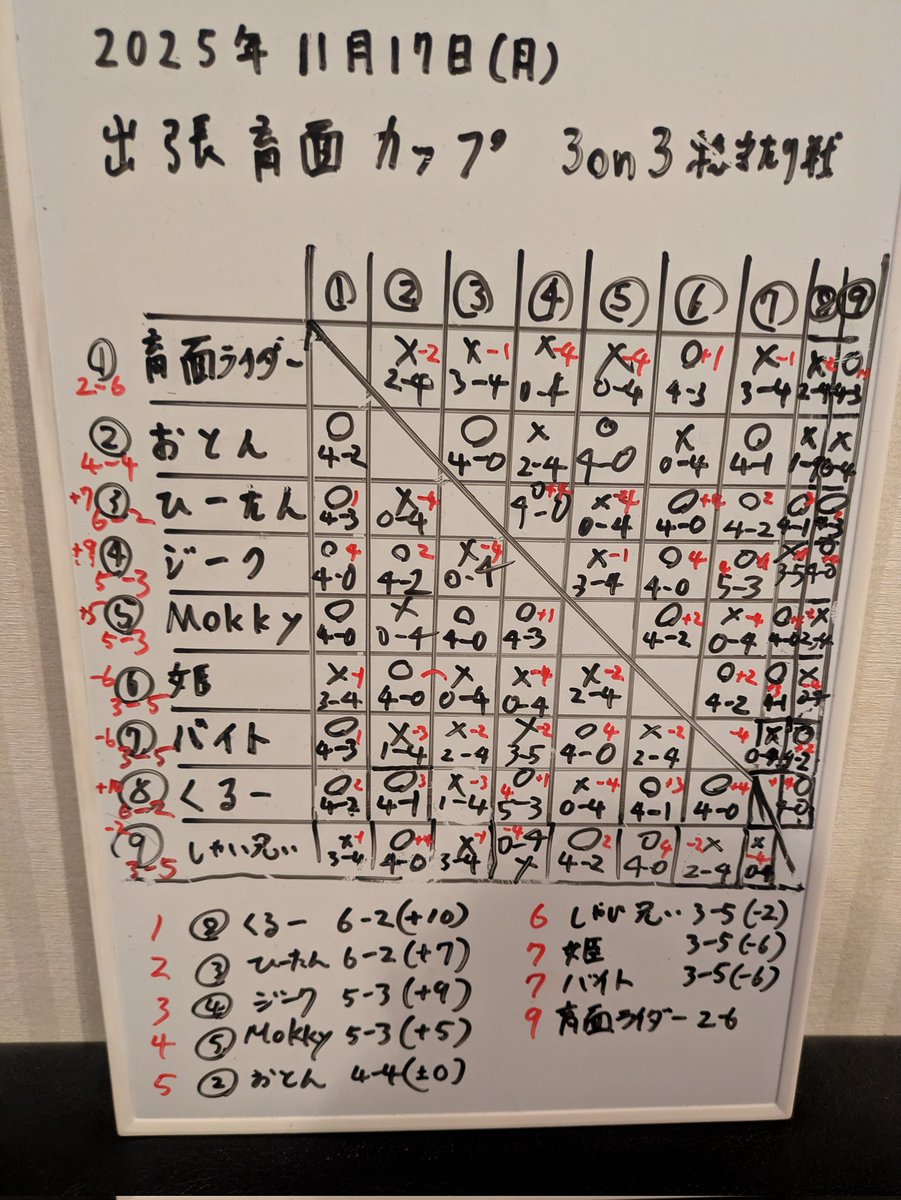 2025年 11月17日(月)
出張育面カップ 3on3総当たり戦
① ② ③ ④ ⑤ ⑥ ⑦ 8 ⑨
① 育面ライダー ×-2 ×-1 ×-4 ×-4 ○+1 ×-1 × ○
2-6 2-4 3-4 0-4 0-4 4-3 3-4 2-4 4-3
② おとん ○ ○ × ○ × ○ × ×
4-4 4-2 4-0 2-4 4-0 0-4 4-1 0-4
③ ひーたん ○1 ×-4 ×-4 ○+4 ○2 ○
+7 6-2 4-3 0-4 4-0 0-4 4-0 4-2 4-1
④ ジーク ○4 ○2 ×-4 ×-1 ○4 ○
+9 5-3 4-0 4-2 0-4 3-4 4-0 5-3 3-5 4-0
⑤ Mokky ○ × ○ ○+1 ○+2 ×-4 ○ ×
+5 5-3 4-0 0-4 4-0 4-3 4-2 0-4 2-4
⑥ 姫 ×-1 ○ × ×-4 ×-2 ○+2 ○ ×
-6 3-5 3-4 4-0 0-4 0-4 2-4 4-2 4-1
⑦ バイト ○1 ×-3 ×-2 ×-2 ○4 ×-2 -4 × ○
-6 3-5 4-3 1-4 2-4 3-5 4-0 2-4 0-4 4-2
⑧ くるー ○2 ○3 ×-3 ○+1 ×-4 ○+3 ○+4 ○
+10 6-2 4-2 4-1 1-4 5-3 0-4 4-1 4-0 4-0
⑨ しゃい兄い ×-1 ○+4 ×-1 -4 0-4 ○2 ○4 -2× ×-4
-2 3-5 3-4 4-0 3-4 × 4-2 4-0 2-4 0-4
1 ⑧ くるー 6-2(+10)
2 ③ ひーたん 6-2(+7)
3 ④ ジーク 5-3(+9)
4 ⑤ Mokky 5-3(+5)
5 ② おとん 4-4(±0)
6 しゃい兄い 3-5(-2)
7 姫 3-5(-6)
7 バイト 3-5(-6)
9 育面ライダー 2-6